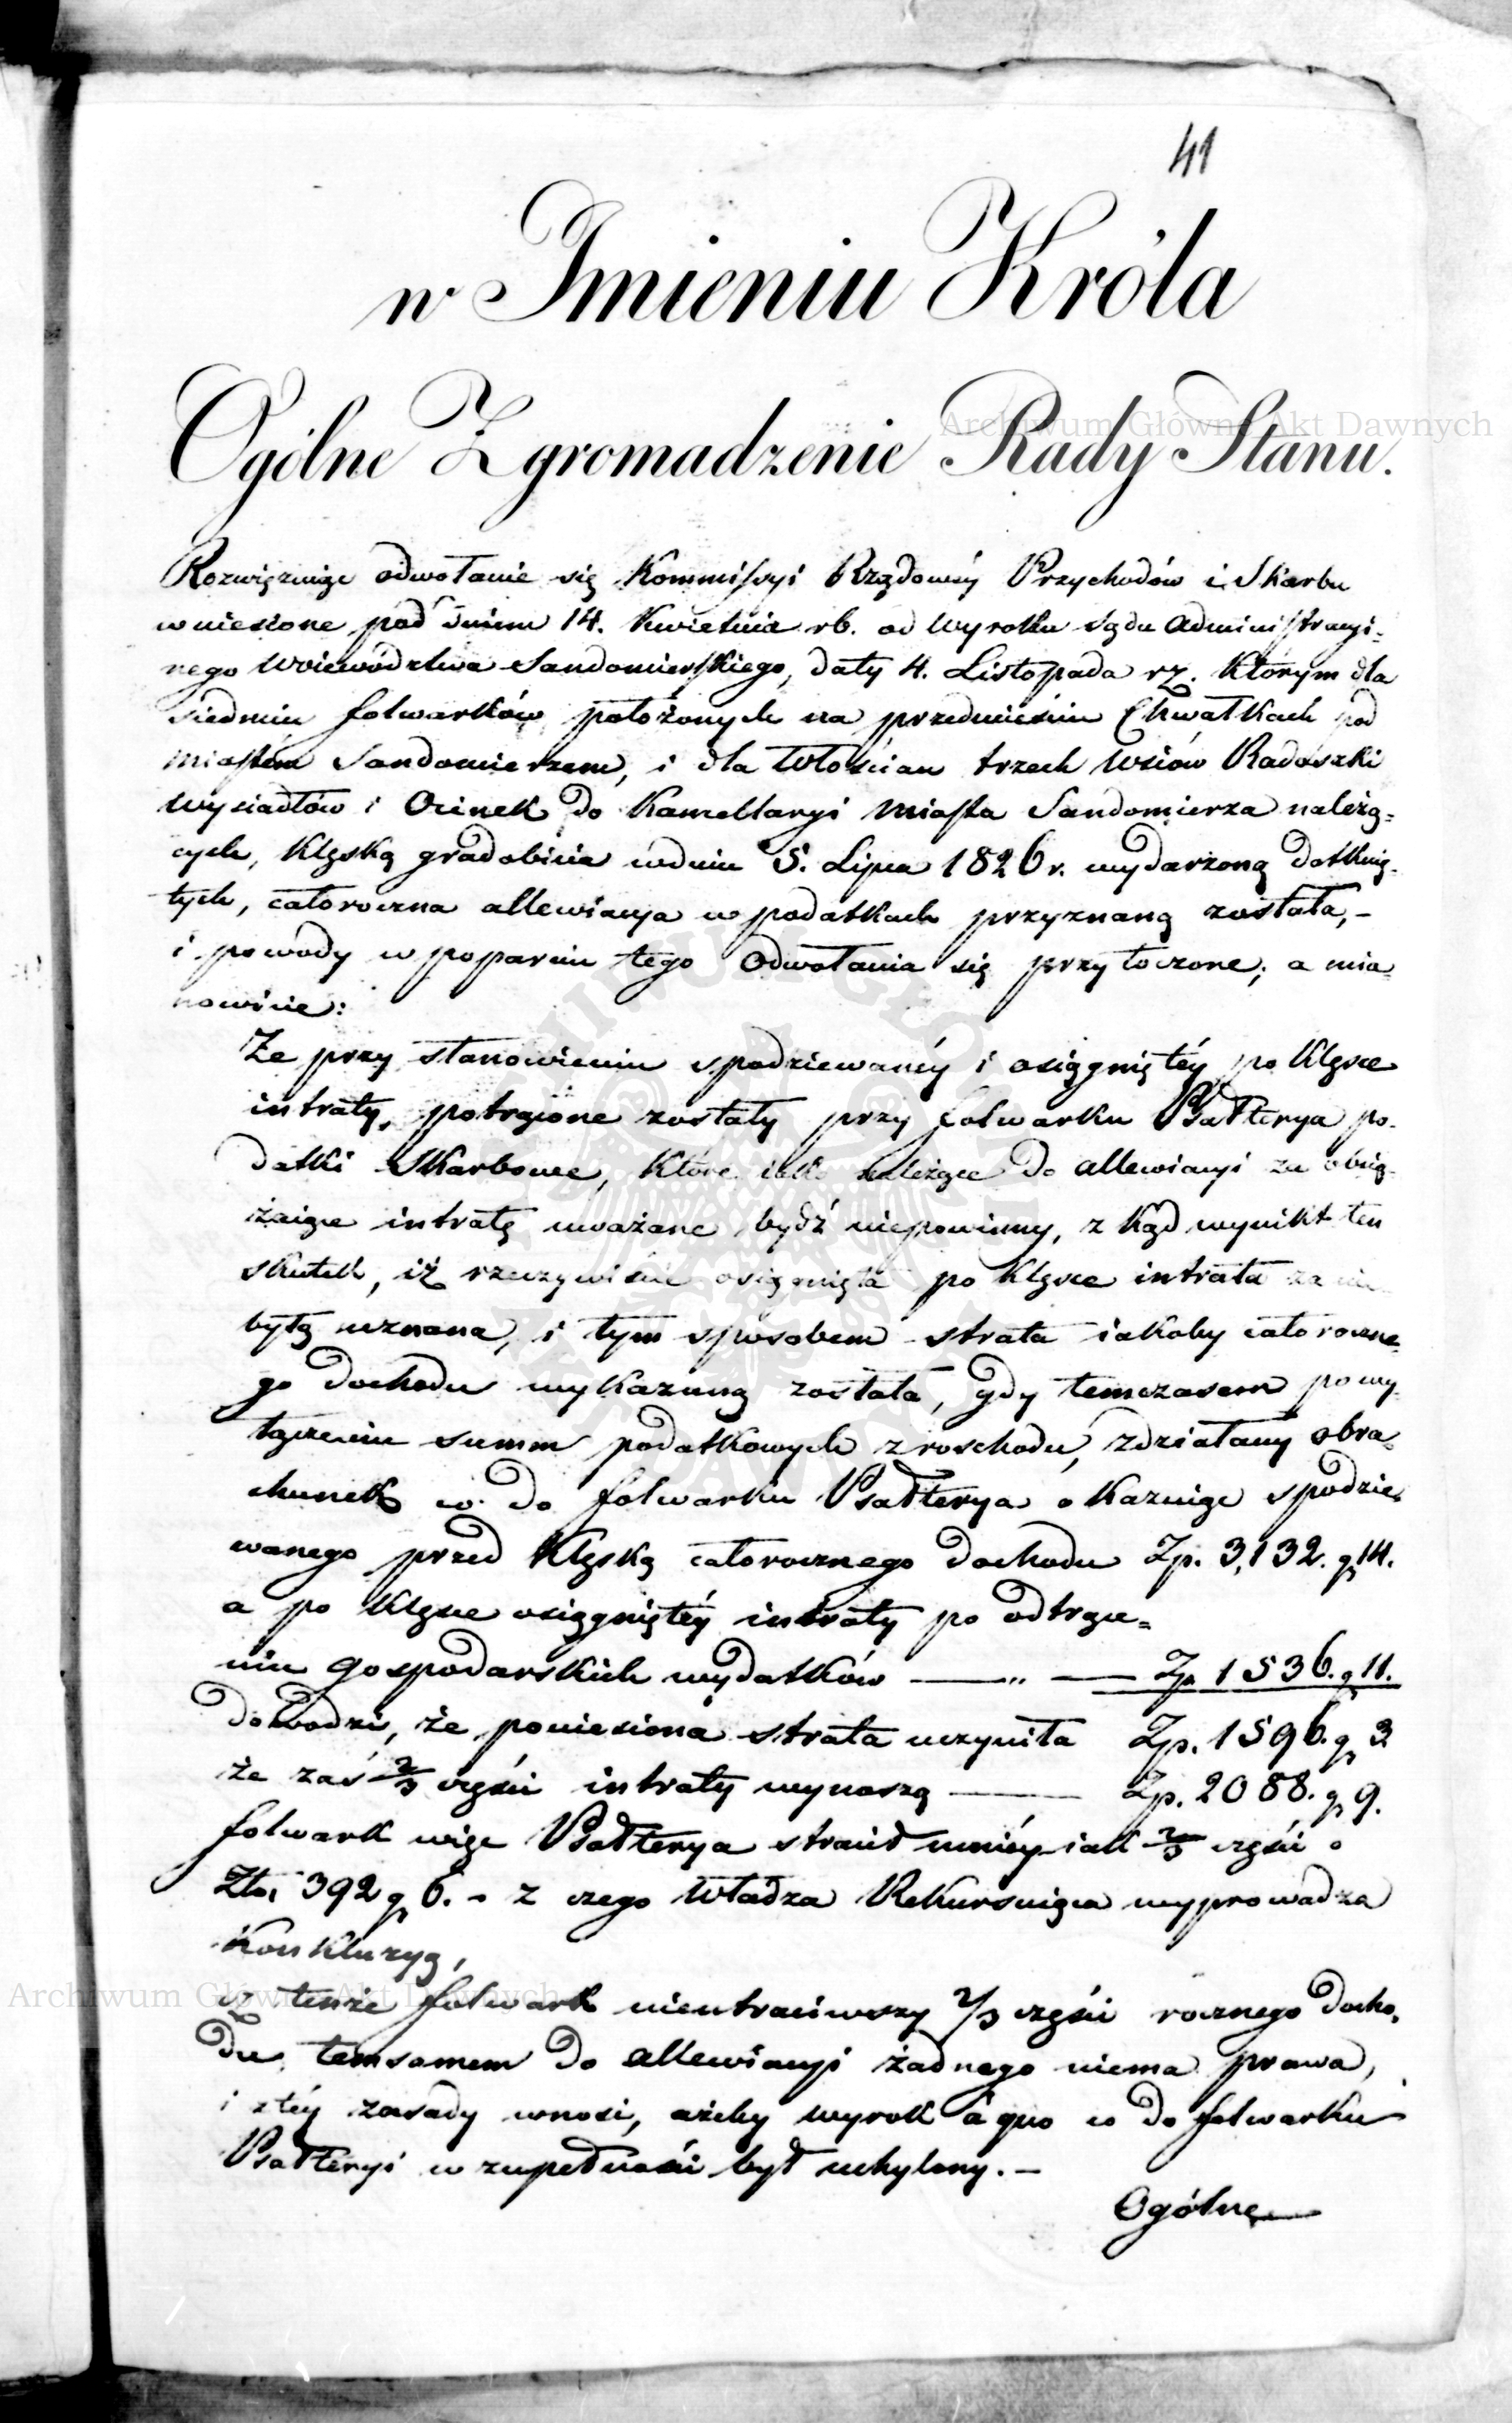 41
w Imieniu Króla
Ogólne Zgromadzenie Rady Stanu.
Rozwięzuiąc odwołanie się Kommissyi Rządowéy Przychodów i Skarbu
wniesione pod dniem 14. Kwietnia rb. od Wyroku Sądu Administracyi-
nego Woiewództwa Sandomierskiego, daty 4. Listopada rz. którym dla
siedmiu folwarków położonych na przedmieściu Chwałkach pod
miastem Sandomierzem, i dla Włościan trzech Wsiów Radoszki
Wysiadłów i Ocinek do Kamellaryi Miasta Sandomierza należą-
cych, klęską gradobicia w dniu 5. Lipca 1826 r. wydarzoną dotknię-
tych, całoroczna allewiacya w podatkach przyznaną została, -
i powody w poparciu tego Odwołania się przytoczone; a mia-
nowicie:
Że przy stanowieniu spodziewanéy i osiągniętéy po klęsce
intraty, potrącone zostały przy folwarku Psałterya po-
datki Skarbowe, które iako należące do allewiacyi za obcią-
żaiące intratę uważane bydź niepowinny, z kąd wynikł ten
skutek, iż rzeczywiście osiągnięta po klęsce intrata za nie
byłą uznana, i tym sposobem strata iakoby całoroczne-
go dochodu wykazaną została, gdy temczasem po wy-
łączeniu summ podatkowych z roschodu, zdziałany obra-
chunek co do folwarku Psałterya okazuiąc spodzie-
wanego przed klęską całorocznego dochodu Zp. 3,132. g 14.
a po klęsce osiągniętéy intraty po odtrące-
niu gospodarskich wydatków — „ — Zp 1536. g 11.
dowodzi, że poniesiona strata uczyniła Zp. 1596. g 3
że zaś 2/3 części intraty wynoszą — Zp. 2088. g 9.
folwark więc Psałterya stracił mniéy iak 2/3 części o
Zło. 392 g 6. - z czego Władza Rekursuiąca wyprowadza
Konkluzyą,
iż tenże folwark nieutraciwszy 2/3 części rocznego docho-
du, temsamem do allewiacyi żadnego niema prawa,
i z téy zasady wnosi, ażeby wyrok à quo co do folwarku
Psałteryi w zupełności był uchylony. -
Ogólne
Archiwum Główne Akt Dawnych
Archiwum Główne Akt Dawnych